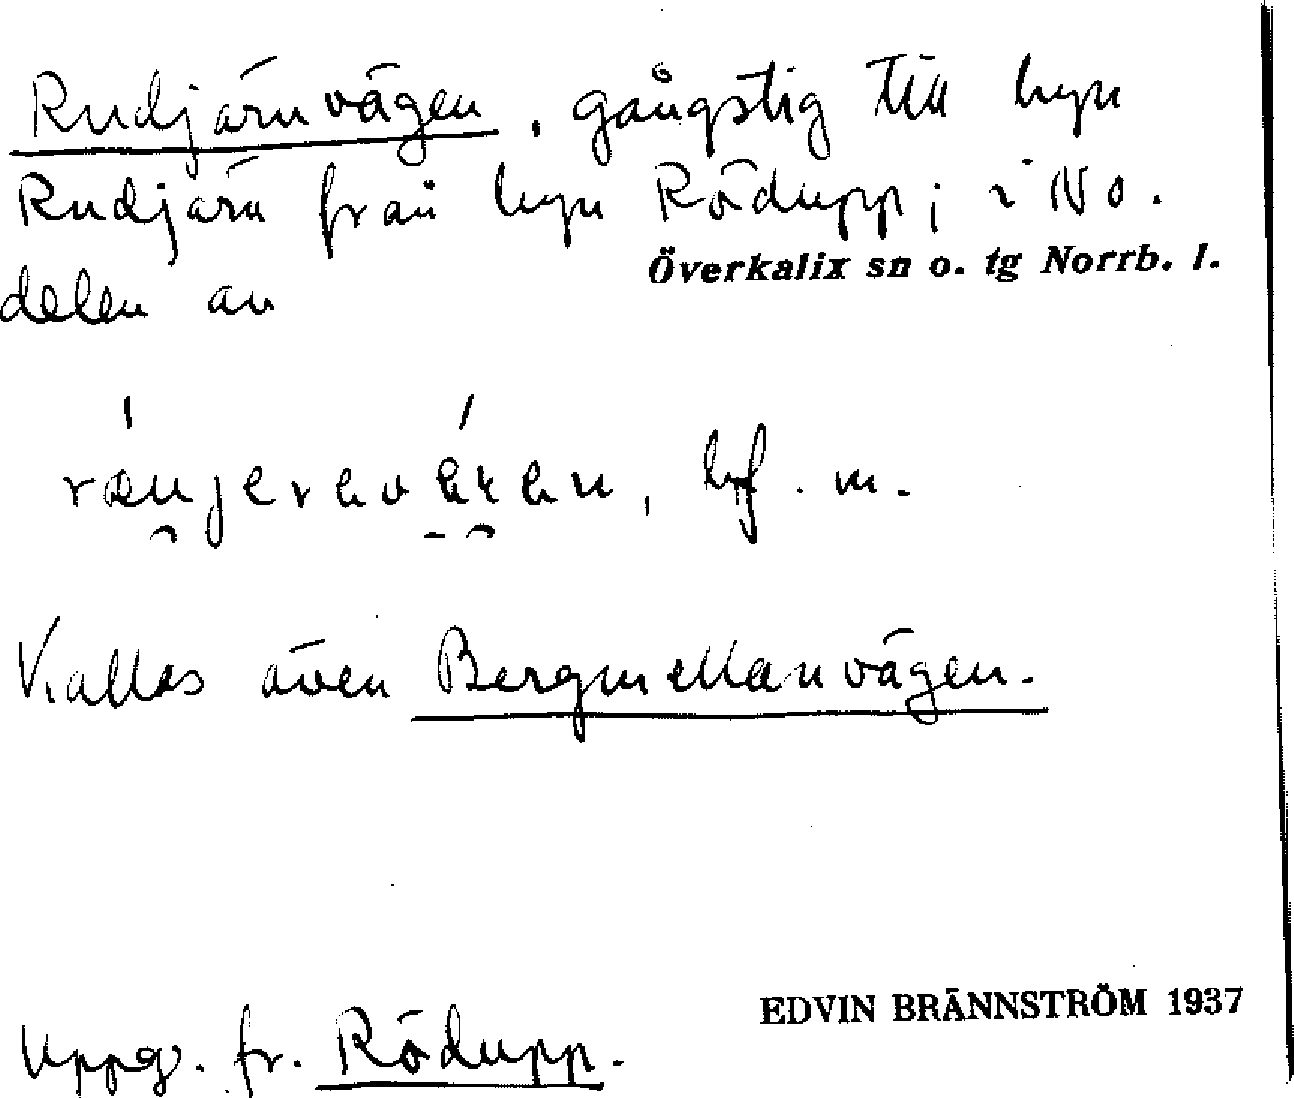 Rudjärnvägen, gångstig till byn
Rudjärn från byn Rödupp; i No.
Överkalix sn o. tg Norrb. l.
delen av
bf. m.
Kallas även Bergmellanvägen.
EDVIN BRÄNNSTRÖM 1937
Uppg. fr. Rödupp.